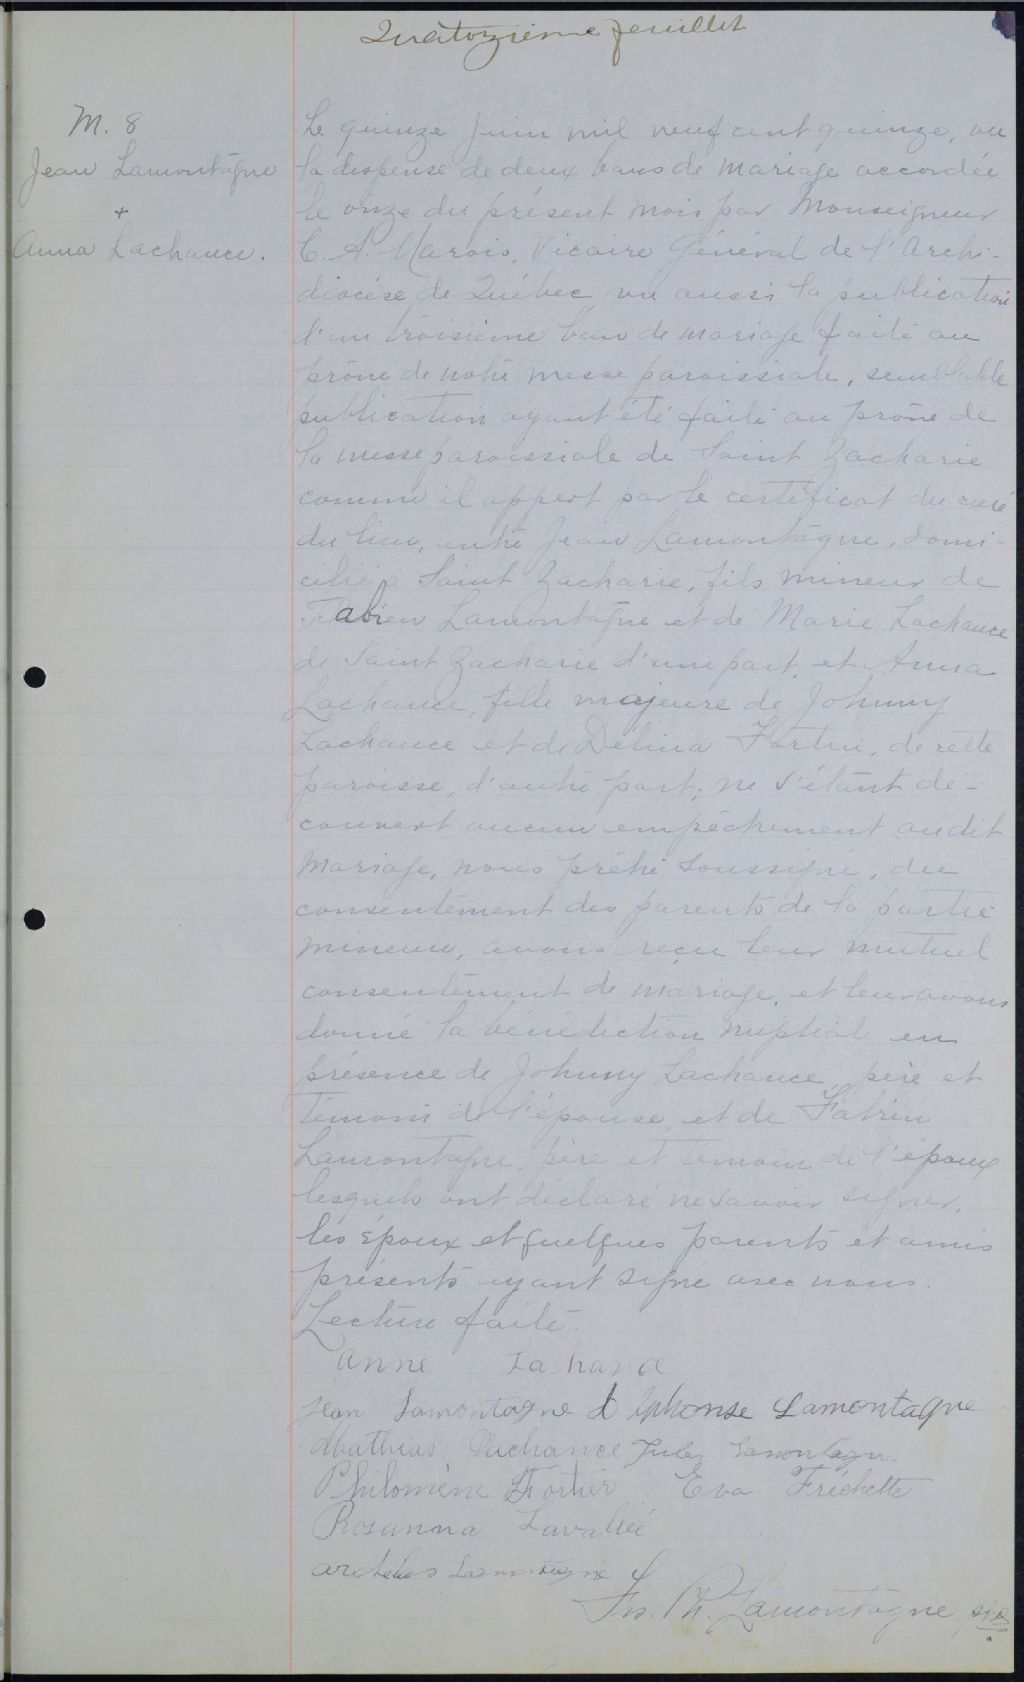 Quatorzième feuillet
M. 8
Jean Lamontagne
+
Anna Lachance.
Le quinze juin mil neuf cent quinze, vu
la dispense de deux bans de mariage accordée
le onze du présent mois par Monseigneur
C. A. Marois, Vicaire Général de l'Archi-
diocèse de Québec vu aussi la publication
d'un troisième ban de mariage faite au
prône de notre messe paroissiale, semblable
publication ayant été faite au prône de
la messe paroissiale de Saint Zacharie
comme il appert par le certificat du curé
du lieu, entre Jean Lamontagne, domi-
cilié à Saint Zacharie, fils mineur de
Fabien Lamontagne et de Marie Lachance
de Saint Zacharie d'une part, et Anna
Lachance, fille majeure de Johnny
Lachance et de Délina Fortin, de cette
paroisse, d'autre part; ne s'étant dé-
couvert aucun empêchement audit
mariage, nous prêtre soussigné, du
consentement des parents de la partie
mineure, avons reçu leur mutuel
consentement de mariage, et leur avons
donné la bénédiction nuptial en
présence de Johnny Lachance, père et
témoin de l'épouse, et de Fabien
Lamontagne, père et temoin de l'époux
lesquels ont déclaré ne savoir signer,
les époux et quelques parents et amis
présents ayant signé avec nous.
Lecture faite.
Anne Lachance
Jean Lamontagne Alphonse Lamontagne
Mathias Lachance Jules Lamontagne
Philomène Fortier Eva Fréchette
Rosanna Lavallée
Lamontagne
Jos. Ph. Lamontagne ptre